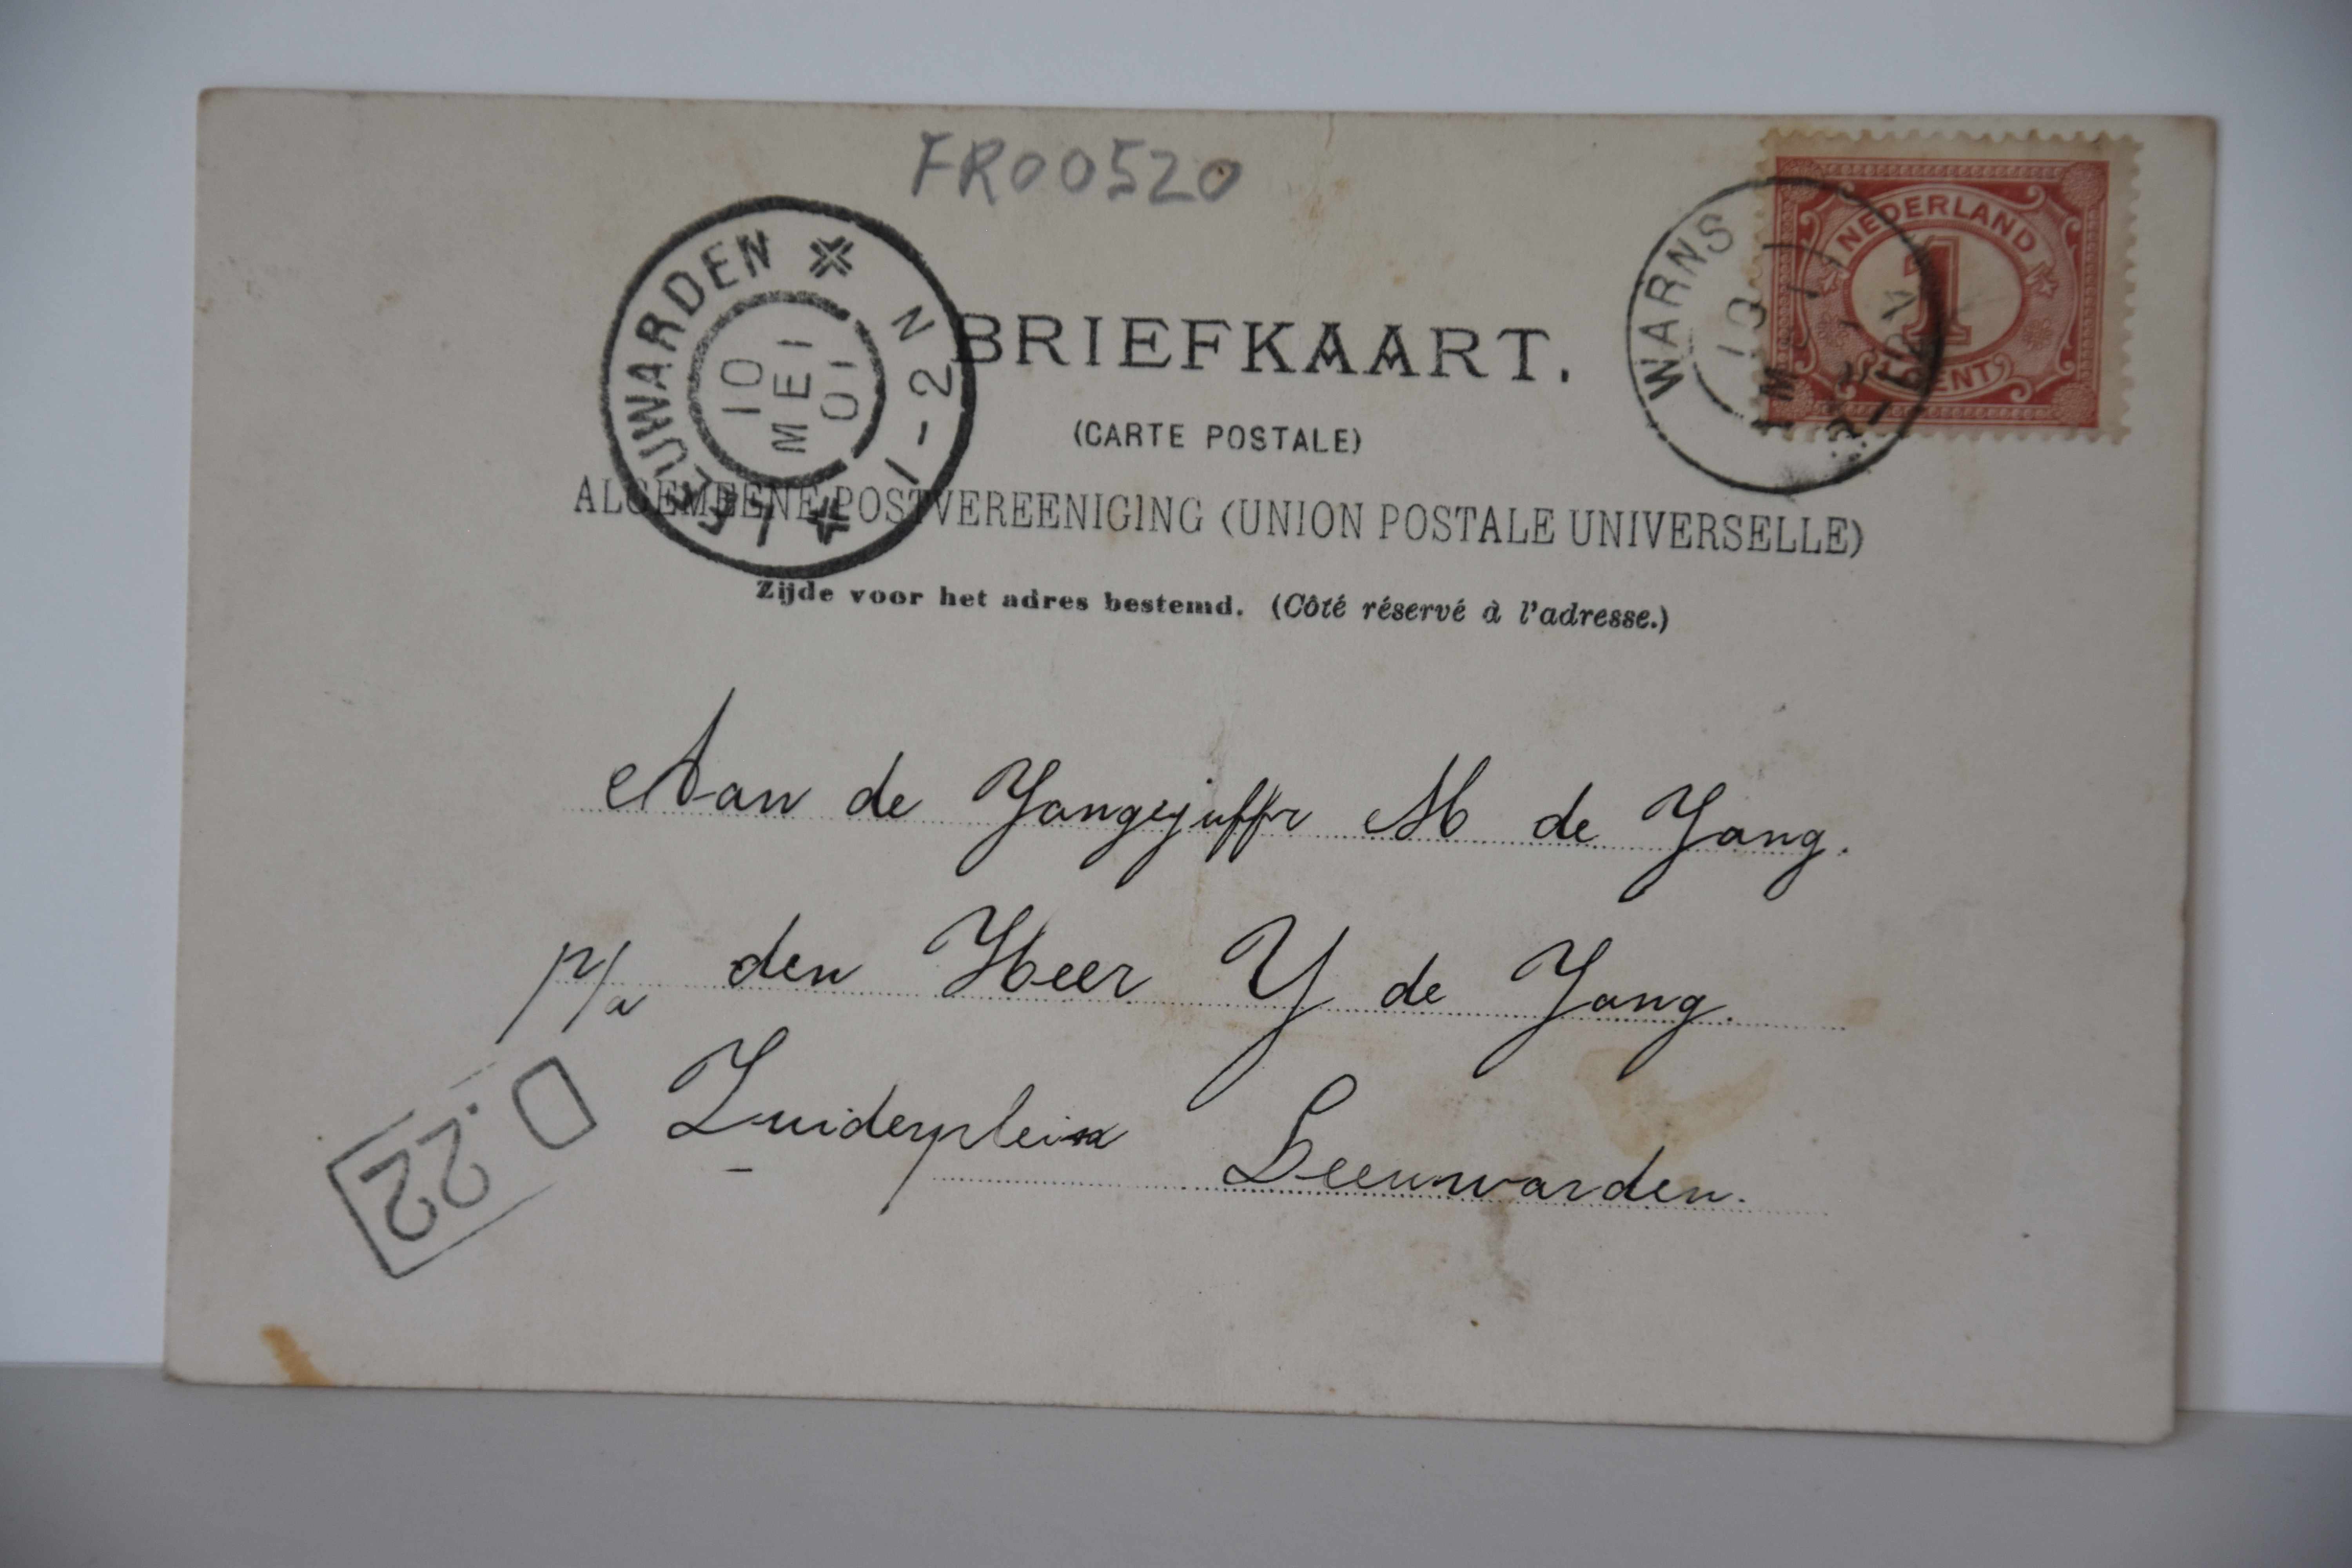 FR00520
LEEUWARDEN
10
MEI
01
1-2 N
WARNS
10
MEI
NEDERLAND
1
CENT
BRIEFKAART.
(CARTE POSTALE)
ALGEMEENE POSTVEREENIGING (UNION POSTALE UNIVERSELLE)
Zijde voor het adres bestemd. (Côté réservé à l'adresse.)
Aan de Jongejuffr M de Jong.
p/a den Heer Y de Jong.
Zuiderplein Leeuwarden.
D.22